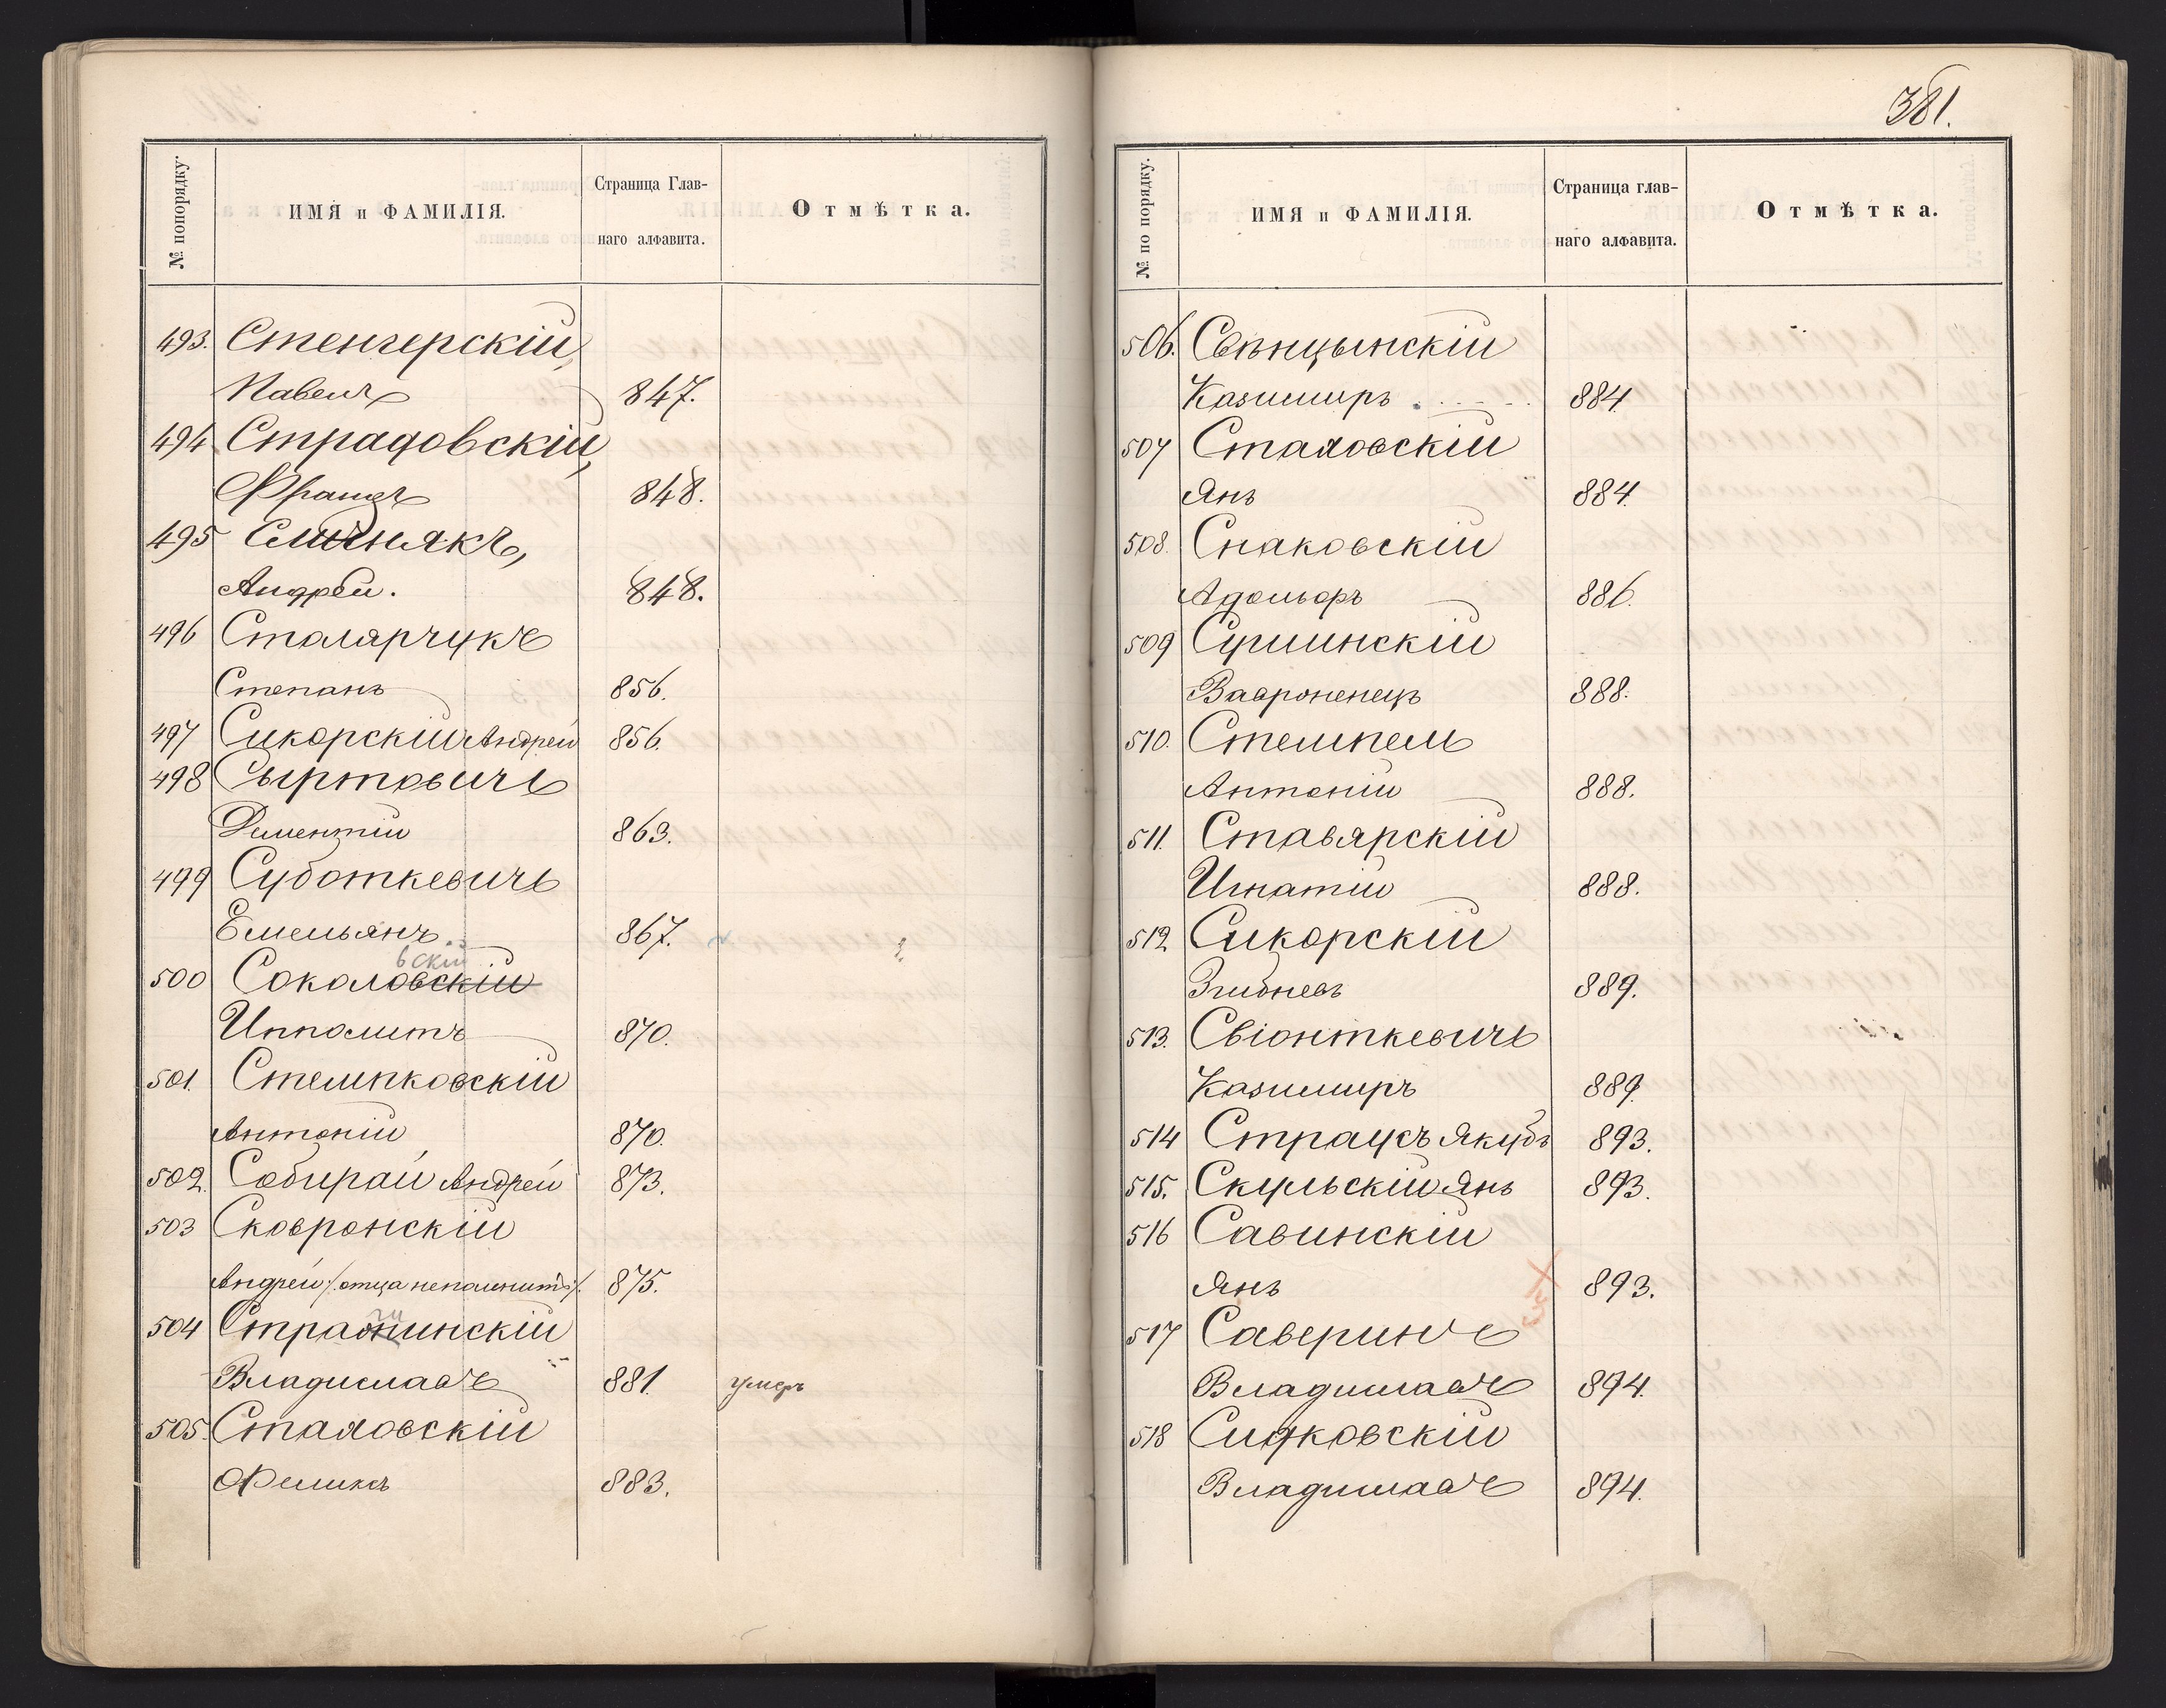 № попорядку.
ИМЯ и ФАМИЛІЯ.
Страница Глав-
наго алфавита.
Отмѣтка.
493. Стенгерскій,
Павелъ 847.
494. Страдовскій,
Францъ 848.
495 Сличнякъ,
Андрей. 848.
496 Столярчукъ
Степанъ 856.
497 Сикорскій Андрей 856.
498 Сыртовичъ
Диментій 863.
499 Суботкевичъ
Емельянъ 867.
вскій
500 Соколовскій
Ипполитъ 870.
501. Стемпковскій
Антоній 870.
502. Собирай Андрей 873.
503 Сковронскій
Андрей /:отца непомнитъ:/. 875.
504 Стражинскій
Владиславъ 881. умеръ
505. Сталовскій
Феликсъ 883.
381.
№ по порядку.
ИМЯ и ФАМИЛІЯ.
Страница глав-
наго алфавита.
Отмѣтка.
506. Свѣнцынскій
Казимиръ 884
507 Сталовскій
Янъ 884.
508. Снаковскій
Адольфъ 886.
509 Сулинскій
Вавроненецъ 888.
510. Стемпель
Антоній 888.
511. Ставярскій
Игнатій 888.
512 Сикорскій
Згибневъ 889.
513. Свіонткевичъ
Казимиръ 889.
514 Страусъ Якубъ 893.
515. Скульскій Янъ 893.
516 Савинскій
Янъ 893.
517 Саверинъ
Владиславъ 894.
518 Сидковскій
Владиславъ 894.